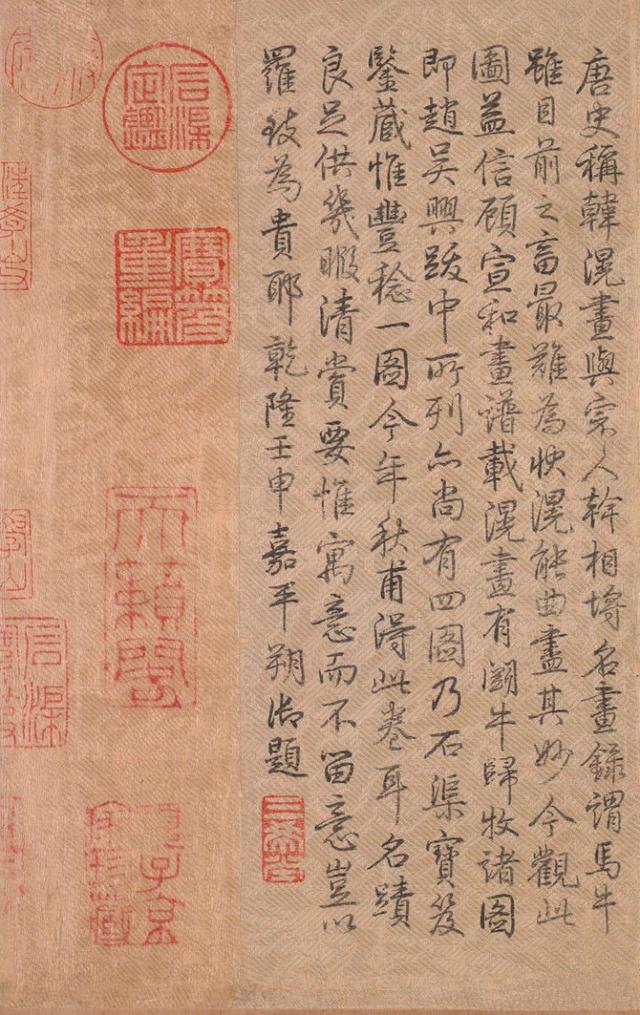 唐史稱韓滉畫與宗人幹相埒名畫錄謂馬牛
雖目前之畜最難為狀滉能曲盡其妙今觀此
圖益信顧宣和畫譜載滉畫有鬬牛歸牧諸圖
即趙吳興跋中所列亦尚有四圖乃石渠寶笈
鑒藏惟豐稔一圖今年秋甫得此卷耳名蹟
良足供幾暇清賞要惟寓意而不留意豈以
羅致為貴耶乾隆壬申嘉平朔御題
三希堂
石渠定鑑
寶笈重編
天籟閣
項子京家珍藏
石渠寶笈